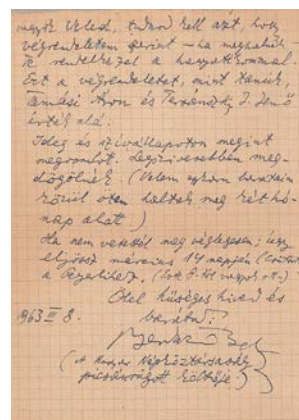 megyek Veled, tudnod kell azt, hogy
végrendeletem szerint – ha meghalnék
Te rendelkezel a hagyatékommal.
Ezt a végrendeletet, mint tanúk,
Tamási Áron és Tersánszky J. Jenő
írták alá.
Ideg és szívállapotom megint
megromlott. Legszívesebben meg-
dögölnék. (Velem egykorú barátaim
közül öten haltak meg két hó-
nap alatt)
Ha nem vetettél meg véglegesen, úgy
eljössz március 14 napján
Ölel hűséges híved és
barátod:
963 III 8.
(A Magyar Népköztársaság
költője)